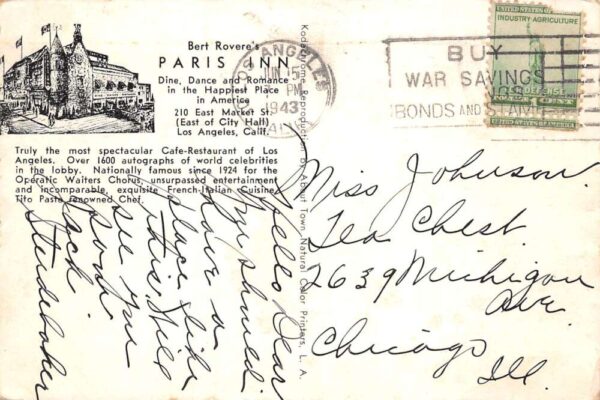 Bert Rovere's
PARIS INN
Dine, Dance and Romance
in the Happiest Place
in America
210 East Market St.
(East of City Hall)
Los Angeles, Calif.
Truly the most spectacular Cafe-Restaurant of Los
Angeles. Over 1600 autographs of world celebrities
in the lobby. Nationally famous since 1924 for the
Operatic Waiters Chorus, unsurpassed entertainment
and incomparable, exquisite French-Italian Cuisine
Tito Pasta renowned Chef.
Hello Dear
You should
have a
place like
this. Will
see you
soon
Jack
Studebaker
Kodachrome Reproduction by About Town Natural Color Printers, L. A.
ANGELES
PM
1943
CALIF
BUY
WAR SAVINGS
BONDS AND STAMPS
UNITED STATES OF
INDUSTRY-AGRICULTURE
DEFENSE
Miss Johnson
Tea Chest
2639 Michigan
Ave
Chicago
Ill.